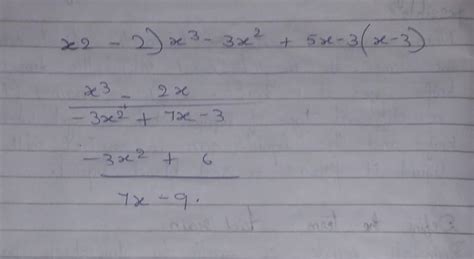 x2 - 2) x³ - 3x² + 5x - 3 (x - 3)
x³ - 2x
- 3x² + 7x - 3
- 3x² + 6
7x - 9.